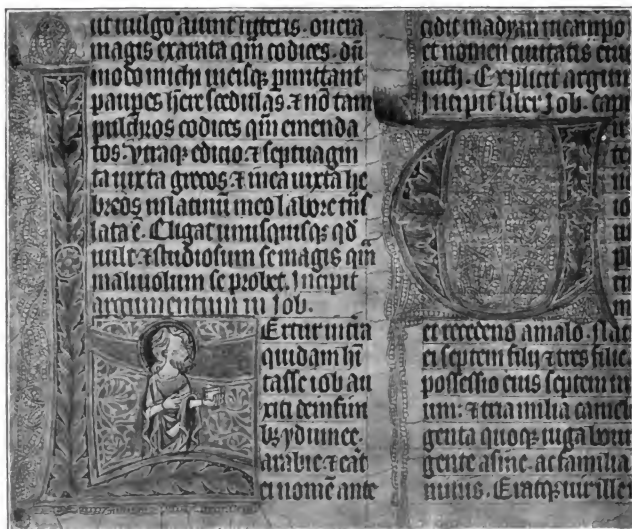 ut uulgo aiunt litteris. onera
magis exarata qm codices. dū
modo michi meisq; pmittant
paupes hēre scedulas. ⁊ nō tam
pulchros codices qm emenda
tos. vtraq; edicio. ⁊ septuagin
ta iuxta grecos. ⁊ mea iuxta he
breos
lata ē. Eligat unusquisq; qd
uult. ⁊ studiosum se magis qm
maliuolum se probet. Incipit
argumentum in Iob.
Ertur iuxta
quidam
iob au
xiti
bz ydumee.
arabie. ⁊
et nomē ante
cidit madyan in campo
et nomen ciuitatis eius
Explicit argum
Incipit liber Iob. capi
U
et recedens a malo. Nati
ei septem filij ⁊ tres filie.
possessio eius septem m
um: ⁊ tria milia camel
genta quoq; iuga boum
gente asine. ac familia
nimis. Eratq; uir ille